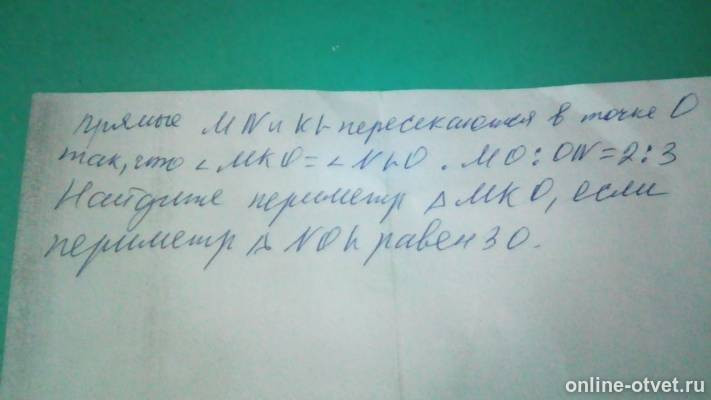 прямые MN и KL пересекаются в точке O
так, что ∠MKO = ∠NLO. MO:ON=2:3
Найдите периметр △MKO, если
периметр △NOL равен 30.
online-otvet.ru